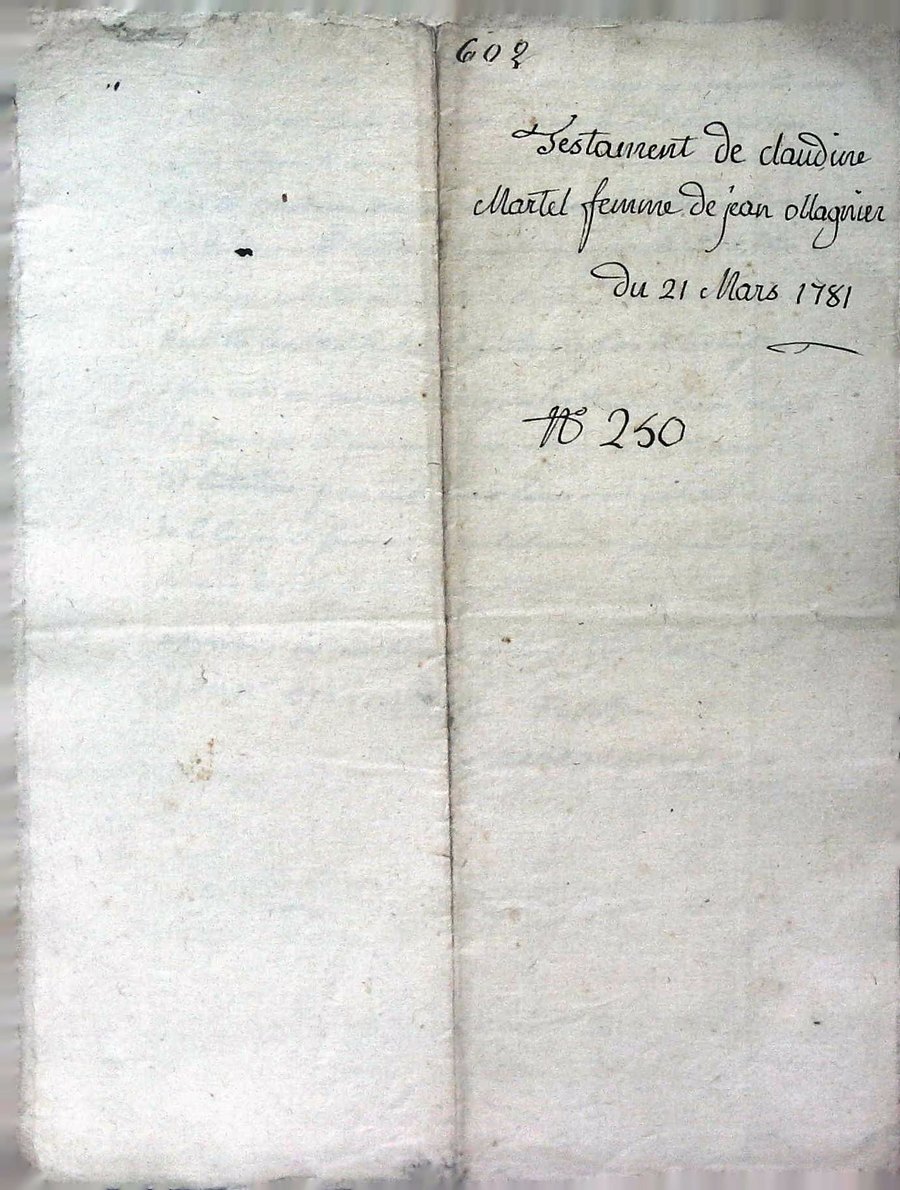 602
Testament de claudine
Martel femme de jean ollagnier
du 21 Mars 1781
No 250